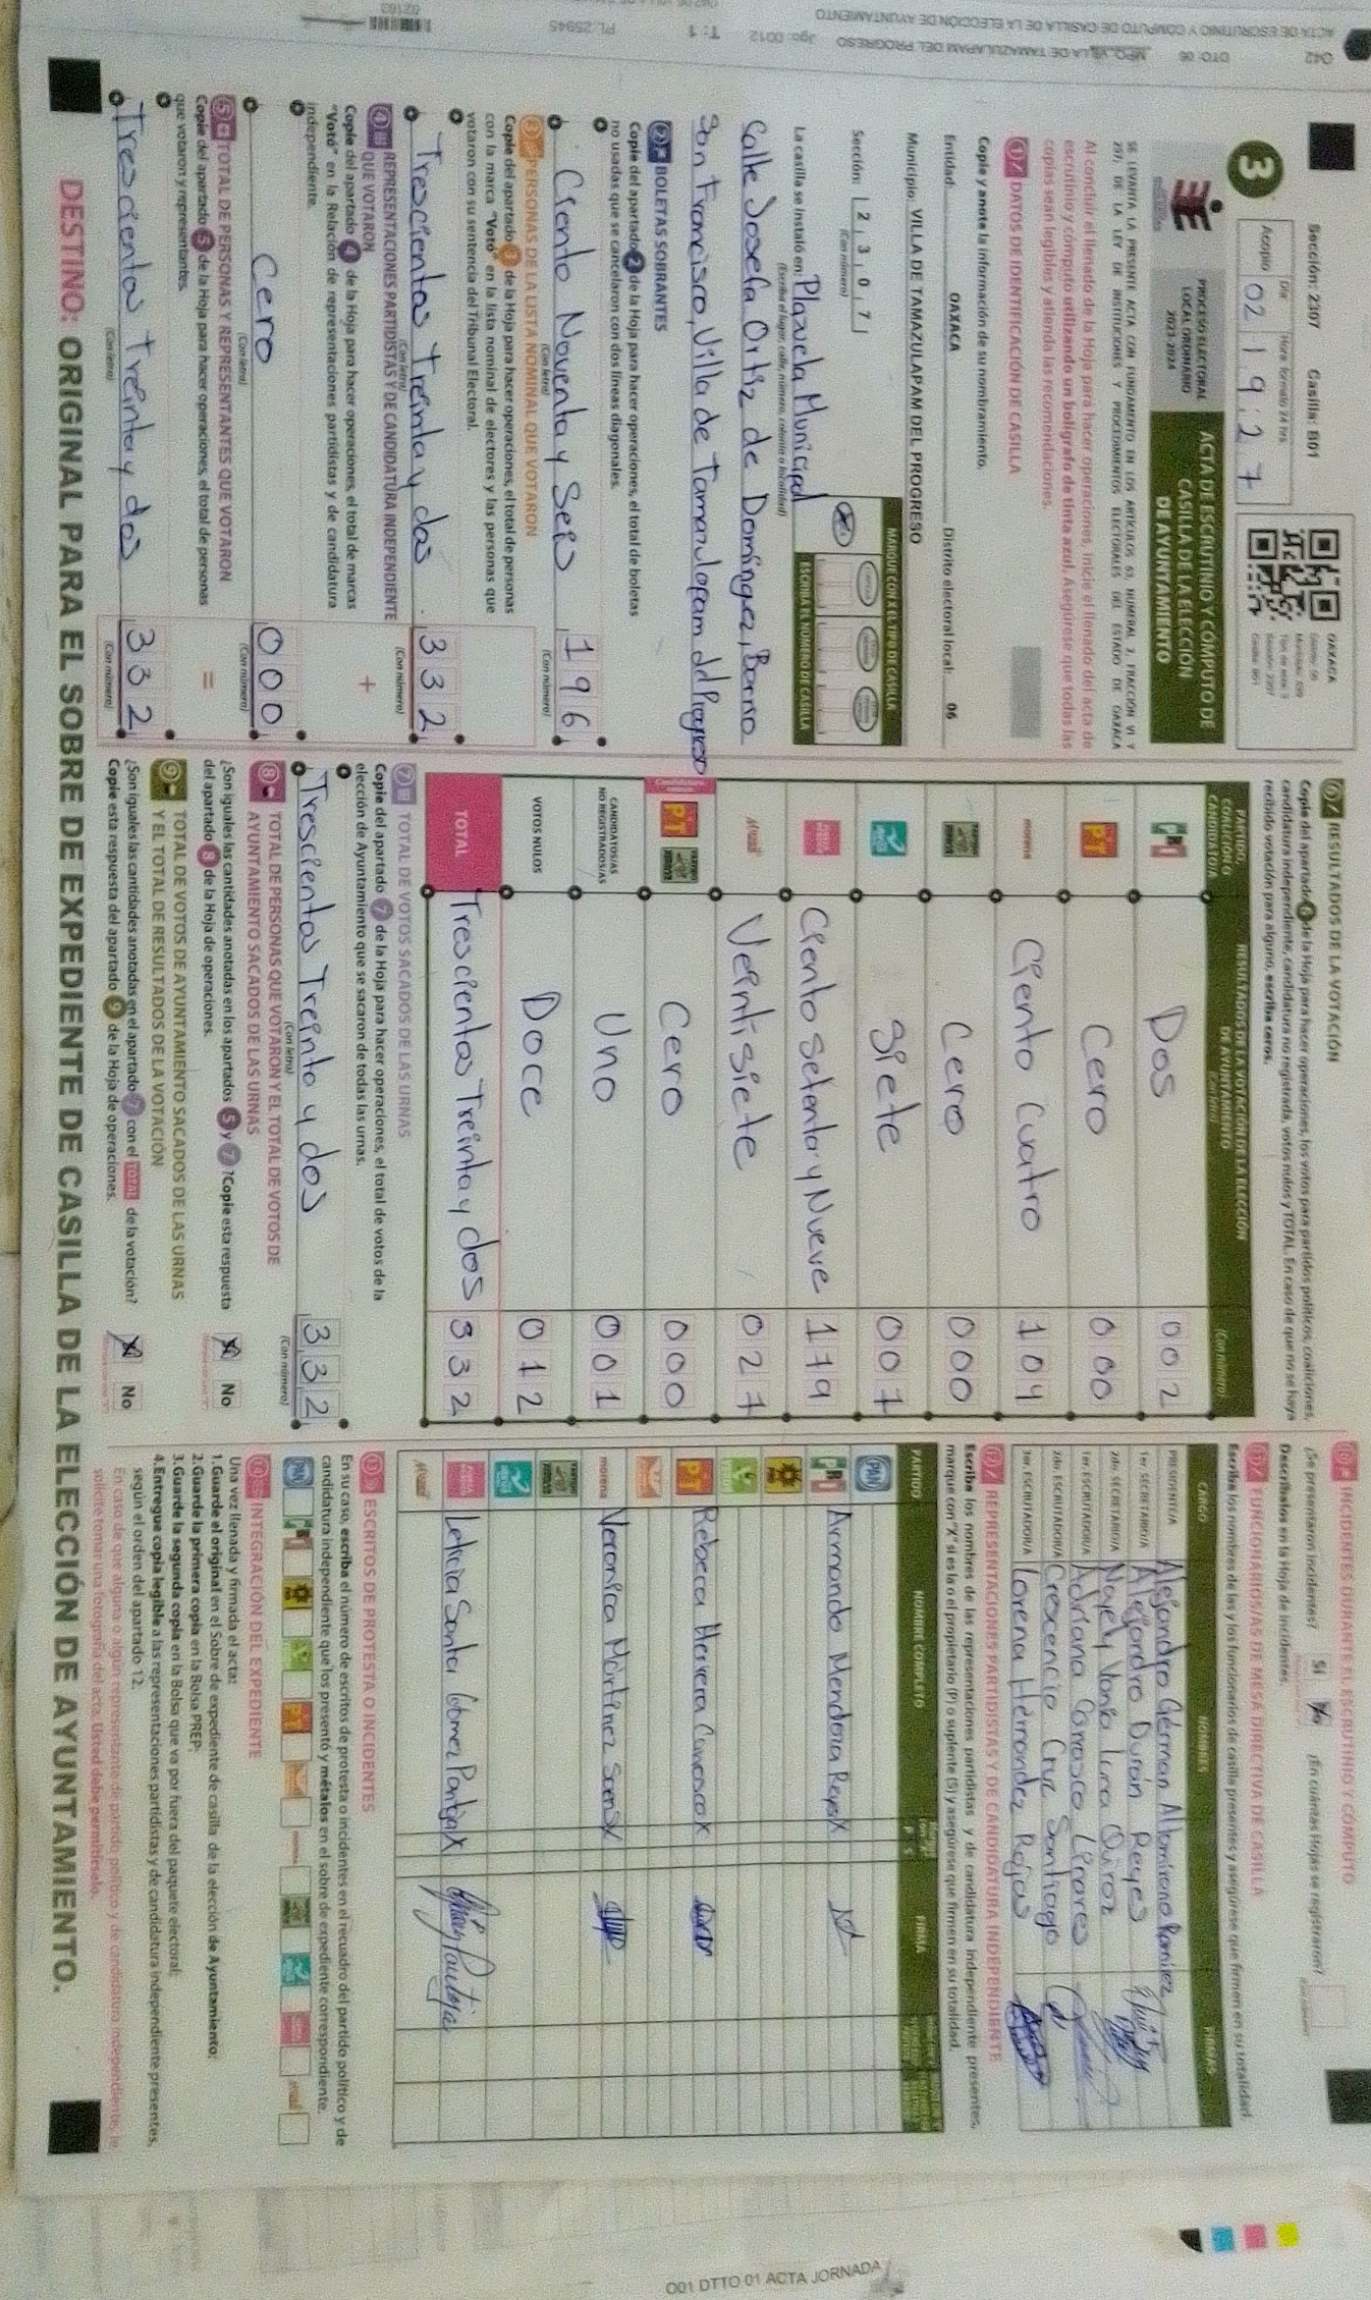 ACTA DE ESCRUTINIO Y CÓMPUTO DE CASILLA DE LA ELECCIÓN DE AYUNTAMIENTO
042 DTO: 06 MPO: VILLA DE TAMAZULAPAM DEL PROGRESO
T: 1
PL: 25945
02163
Sección: 2307 Casilla: B01
3
Día Hora: formato 24 hrs
Acopio 02 19:27
OAXACA
PROCESO ELECTORAL
LOCAL ORDINARIO
2023-2024
ACTA DE ESCRUTINIO Y CÓMPUTO DE
CASILLA DE LA ELECCIÓN
DE AYUNTAMIENTO
SE LEVANTA LA PRESENTE ACTA CON FUNDAMENTO EN LOS ARTÍCULOS 63, NUMERAL 2, FRACCIÓN VI Y
257, DE LA LEY DE INSTITUCIONES Y PROCEDIMIENTOS ELECTORALES DEL ESTADO DE OAXACA
Al concluir el llenado de la Hoja para hacer operaciones, inicie el llenado del acta de
escrutinio y cómputo utilizando un bolígrafo de tinta azul. Asegúrese que todas las
copias sean legibles y atienda las recomendaciones.
1 DATOS DE IDENTIFICACIÓN DE CASILLA
Copie y anote la información de su nombramiento.
Entidad: OAXACA Distrito electoral local: 06
Municipio: VILLA DE TAMAZULAPAM DEL PROGRESO
Sección: 2307
(Con número)
MARQUE CON X EL TIPO DE CASILLA
ESCRIBA EL NÚMERO DE CASILLA
La casilla se instaló en: Plazuela Municipal
(Escriba el lugar, calle, número, colonia o localidad)
Calle Josefa Ortiz de Domínguez, Barrio
San Francisco, Villa de Tamazulapam del Progreso
2 BOLETAS SOBRANTES
Copie del apartado 2 de la Hoja para hacer operaciones, el total de boletas
no usadas que se cancelaron con dos líneas diagonales.
Ciento Noventa y Seis 196
(Con letra) (Con número)
3 PERSONAS DE LA LISTA NOMINAL QUE VOTARON
Copie del apartado 3 de la Hoja para hacer operaciones, el total de personas
con la marca "Votó" en la lista nominal de electores y las personas que
votaron con su sentencia del Tribunal Electoral.
Trescientos Treinta y dos 332
(Con letra) (Con número)
4 REPRESENTACIONES PARTIDISTAS Y DE CANDIDATURA INDEPENDIENTE
QUE VOTARON
Copie del apartado 4 de la Hoja para hacer operaciones, el total de marcas
"Votó" en la Relación de representaciones partidistas y de candidatura
independiente.
+
Cero 000
(Con letra) (Con número)
5 TOTAL DE PERSONAS Y REPRESENTANTES QUE VOTARON
Copie del apartado 5 de la Hoja para hacer operaciones, el total de personas
que votaron y representantes.
=
Trescientos Treinta y dos 332
(Con letra) (Con número)
6 RESULTADOS DE LA VOTACIÓN
Copie del apartado 6 de la Hoja para hacer operaciones, los votos para partidos políticos, coaliciones,
candidatura independiente, candidatura no registrada, votos nulos y TOTAL. En caso de que no se haya
recibido votación para alguno, escriba ceros.
PARTIDO, COALICIÓN O CANDIDATO/A
RESULTADOS DE LA VOTACIÓN DE LA ELECCIÓN DE AYUNTAMIENTO
(Con letra) (Con número)
PRI Dos 002
PT Cero 000
morena Ciento Cuatro 104
Cero 000
Siete 007
Ciento Setenta y Nueve 179
Veintisiete 027
PT Cero 000
CANDIDATOS/AS NO REGISTRADOS/AS Uno 001
VOTOS NULOS Doce 012
TOTAL Trescientos Treinta y dos 332
7 TOTAL DE VOTOS SACADOS DE LAS URNAS
Copie del apartado 7 de la Hoja para hacer operaciones, el total de votos de la
elección de Ayuntamiento que se sacaron de todas las urnas.
Trescientos Treinta y dos 332
(Con letra) (Con número)
8 TOTAL DE PERSONAS QUE VOTARON Y EL TOTAL DE VOTOS DE
AYUNTAMIENTO SACADOS DE LAS URNAS
¿Son iguales las cantidades anotadas en los apartados 5 y 7? Copie esta respuesta
del apartado 8 de la Hoja de operaciones. No
9 TOTAL DE VOTOS DE AYUNTAMIENTO SACADOS DE LAS URNAS
Y EL TOTAL DE RESULTADOS DE LA VOTACIÓN
¿Son iguales las cantidades anotadas en el apartado 7 con el TOTAL de la votación?
Copie esta respuesta del apartado 9 de la Hoja de operaciones. No
10 INCIDENTES DURANTE EL ESCRUTINIO Y CÓMPUTO
¿Se presentaron incidentes? Sí No ¿En cuántas Hojas se registraron?
Descríbalos en la Hoja de incidentes.
FUNCIONARIOS/AS DE MESA DIRECTIVA DE CASILLA
Escriba los nombres de las y los funcionarios de casilla presentes y asegúrese que firmen en su totalidad
CARGO NOMBRES FIRMAS
PRESIDENTE/A Alejandro Germán Altamirano Ramírez
1er. SECRETARIO/A Alejandro Durán Reyes
2do. SECRETARIO/A Nayely Vania Luna Quiroz
1er. ESCRUTADOR/A Adriana Carrasco Linares
2do. ESCRUTADOR/A Crescencio Cruz Santiago
3er. ESCRUTADOR/A Lorena Hernández Rojas
REPRESENTACIONES PARTIDISTAS Y DE CANDIDATURA INDEPENDIENTE
Escriba los nombres de las representaciones partidistas y de candidatura independiente presentes,
marque con "X" si es la o el propietario (P) o suplente (S) y asegúrese que firmen en su totalidad.
PARTIDO NOMBRE COMPLETO FIRMA
PAN
PRI Armando Mendoza Reyes X
PT Rebeca Herrera Carrasco X
morena Veronica Martínez X
Leticia Gómez Pantoja X
ESCRITOS DE PROTESTA O INCIDENTES
En su caso, escriba el número de escritos de protesta o incidentes en el recuadro del partido político y de
candidatura independiente que los presentó y métalos en el sobre de expediente correspondiente.
INTEGRACIÓN DEL EXPEDIENTE
Una vez llenada y firmada el acta:
1.Guarde el original en el Sobre de expediente de casilla de la elección de Ayuntamiento;
2.Guarde la primera copia en la Bolsa PREP;
3.Guarde la segunda copia en la Bolsa que va por fuera del paquete electoral;
4.Entregue copia legible a las representaciones partidistas y de candidatura independiente presentes,
según el orden del apartado 12.
En caso de que alguna o algún representante de partido político y de candidatura independiente, le
solicite tomar una fotografía del acta. Usted debe permitírselo.
DESTINO: ORIGINAL PARA EL SOBRE DE EXPEDIENTE DE CASILLA DE LA ELECCIÓN DE AYUNTAMIENTO.
001 DTTO 01 ACTA JORNADA